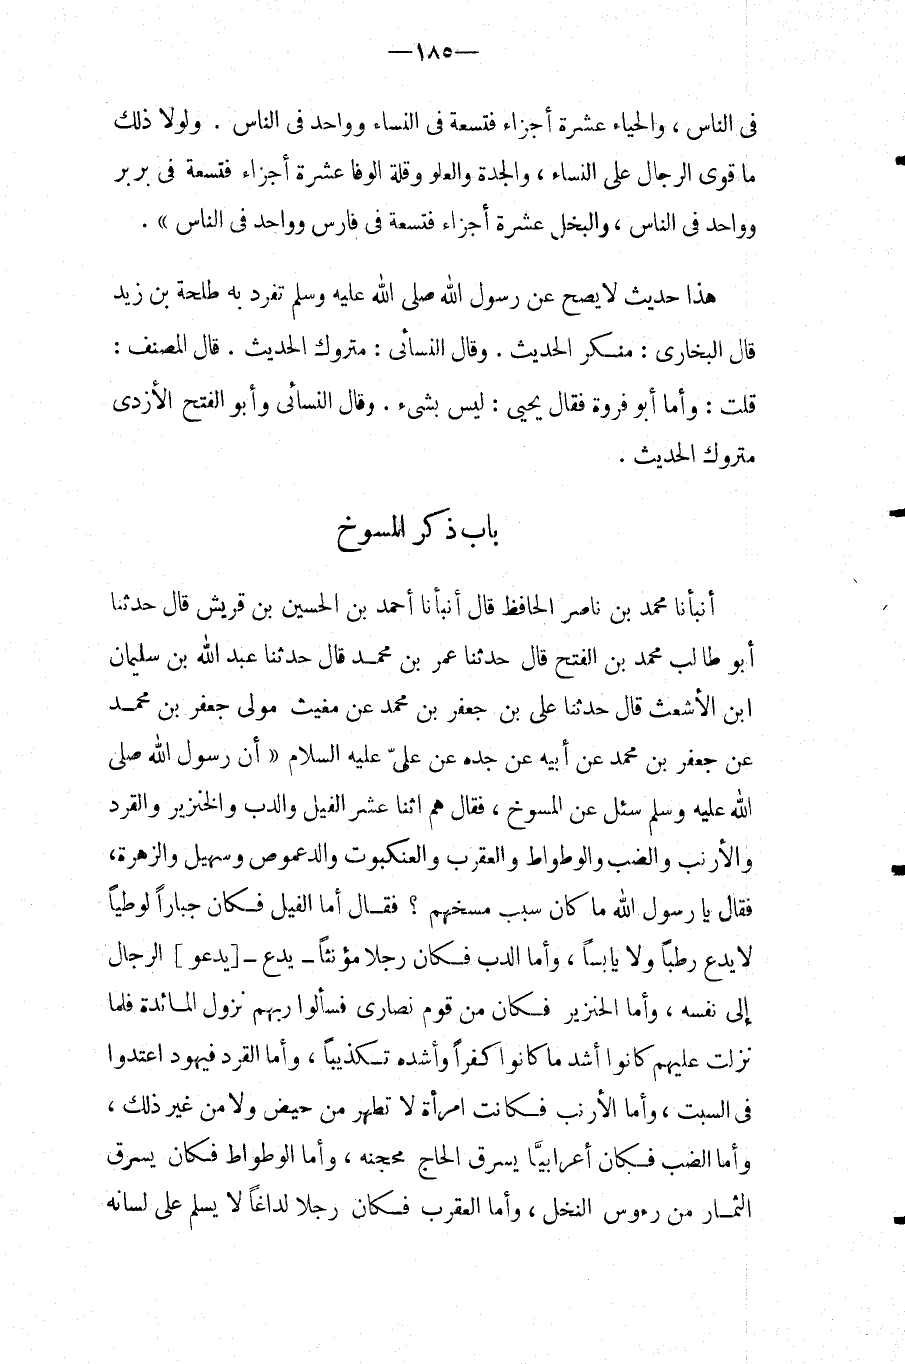 —١٨٥—
فى الناس ، والحياء عشرة أجزاء فتسعة فى النساء وواحد فى الناس . ولولا ذلك
ما قوى الرجال على النساء ، والجدة والعلو وقلة الوفا عشرة أجزاء فتسعة فى بربر
وواحد فى الناس ، والبخل عشرة أجزاء فتسعة فى فارس وواحد فى الناس » .
هذا حديث لا يصح عن رسول الله صلى الله عليه وسلم تفرد به طلحة بن زيد
قال البخارى : منكر الحديث . وقال النسائى : متروك الحديث . قال المصنف :
قلت : وأما أبو فروة فقال يحيى : ليس بشىء . وقال النسائى وأبو الفتح الأزدى
متروك الحديث .
باب ذكر المسوخ
أنبأنا محمد بن ناصر الحافظ قال أنبأنا أحمد بن الحسين بن قريش قال حدثنا
أبو طالب محمد بن الفتح قال حدثنا عمر بن محمد قال حدثنا عبد الله بن سليمان
ابن الأشعث قال حدثنا على بن جعفر بن محمد عن مغيث مولى جعفر بن محمد
عن جعفر بن محمد عن أبيه عن جده عن علىّ عليه السلام « أن رسول الله صلى
الله عليه وسلم سئل عن المسوخ ، فقال هم اثنا عشر الفيل والدب والخنزير والقرد
والأرنب والضب والوطواط والعقرب والعنكبوت والدعموص وسهيل والزهرة،
فقال يا رسول الله ما كان سبب مسخهم ؟ فقال أما الفيل فكان جباراً لوطياً
لا يدع رطباً ولا يابساً ، وأما الدب فكان رجلا مؤنثاً - يدع - [يدعو ] الرجال
إلى نفسه ، وأما الخنزير فكان من قوم نصارى فسألوا ربهم نزول المائدة فلما
نزلت عليهم كانوا أشد ما كانوا كفراً وأشده تكذيباً ، وأما القرد فيهود اعتدوا
فى السبت ، وأما الأرنب فكانت امرأة لا تطهر من حيض ولا من غير ذلك ،
وأما الضب فكان أعرابيًّا يسرق الحاج محجنه ، وأما الوطواط فكان يسرق
الثمار من رءوس النخل ، وأما العقرب فكان رجلا لداغاً لا يسلم على لسانه